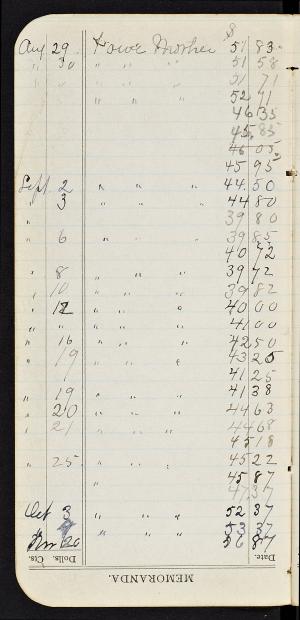 $
Aug 29 Howe Mother 51 83
" 30 " " " 51 58
51 71
" " " 52 71
46 35
45 85
46 05
45 95
Sept 2 " " " 44.50
" 3 " " " 44 80
" 39 80
" 6 " " " 39 85
40 72
" 8 " " " 39 72
" 10 " " " 39 82
" 12 " " " 40 00
" " " " 41 00
" 16 " " " 42 50
" 19 " " " 43 25
41 25
" 19 " " " 41 38
" 20 " " " 44 63
" 21 " " " 44 68
45 18
" 25 " " " 45 22
" 45 87
47 37
Oct 3 " " " 52 37
" " " 53 37
20 56 87
Dolls. Cts. Date.
MEMORANDA.